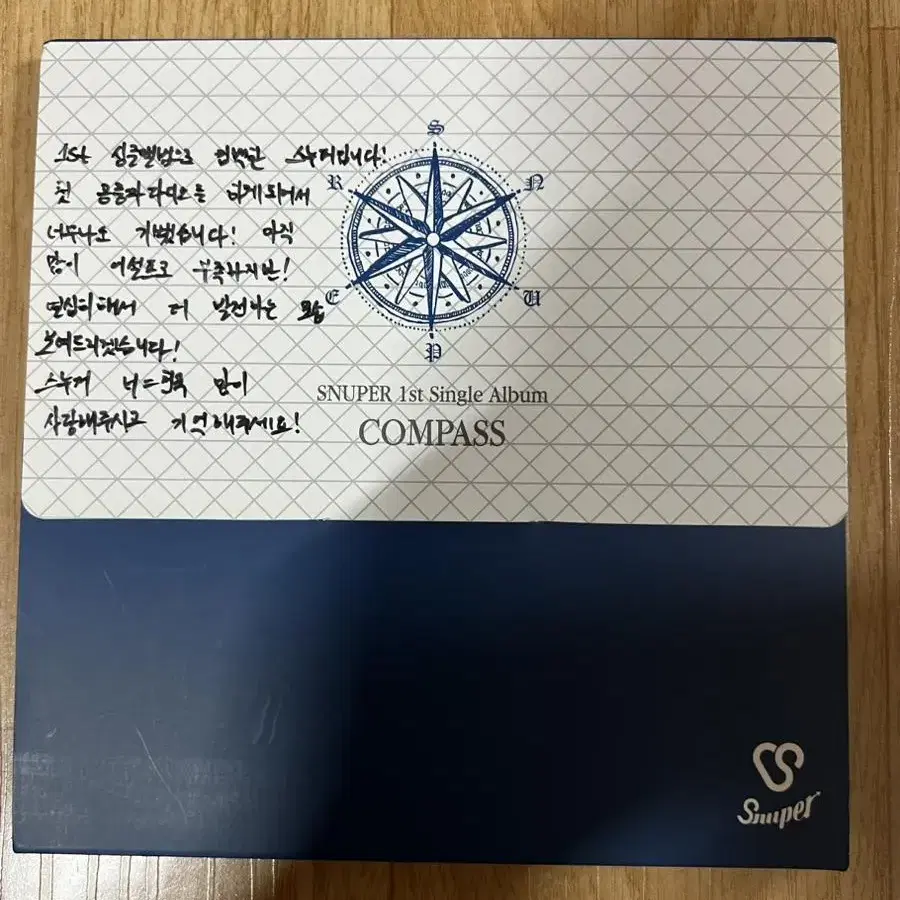 1st 싱글앨범으로 컴백한 스누퍼입니다!
첫 공중파 라디오를 하게되어서
너무나도 기뻤습니다! 아직
많이 어설프고 부족하지만!
열심히해서 더 발전하는 모습
보여드리겠습니다!
스누퍼 너무 많이
사랑해주시고 기억해주세요!
S
R
N
E
U
P
SNUPER 1st Single Album
COMPASS
Snuper